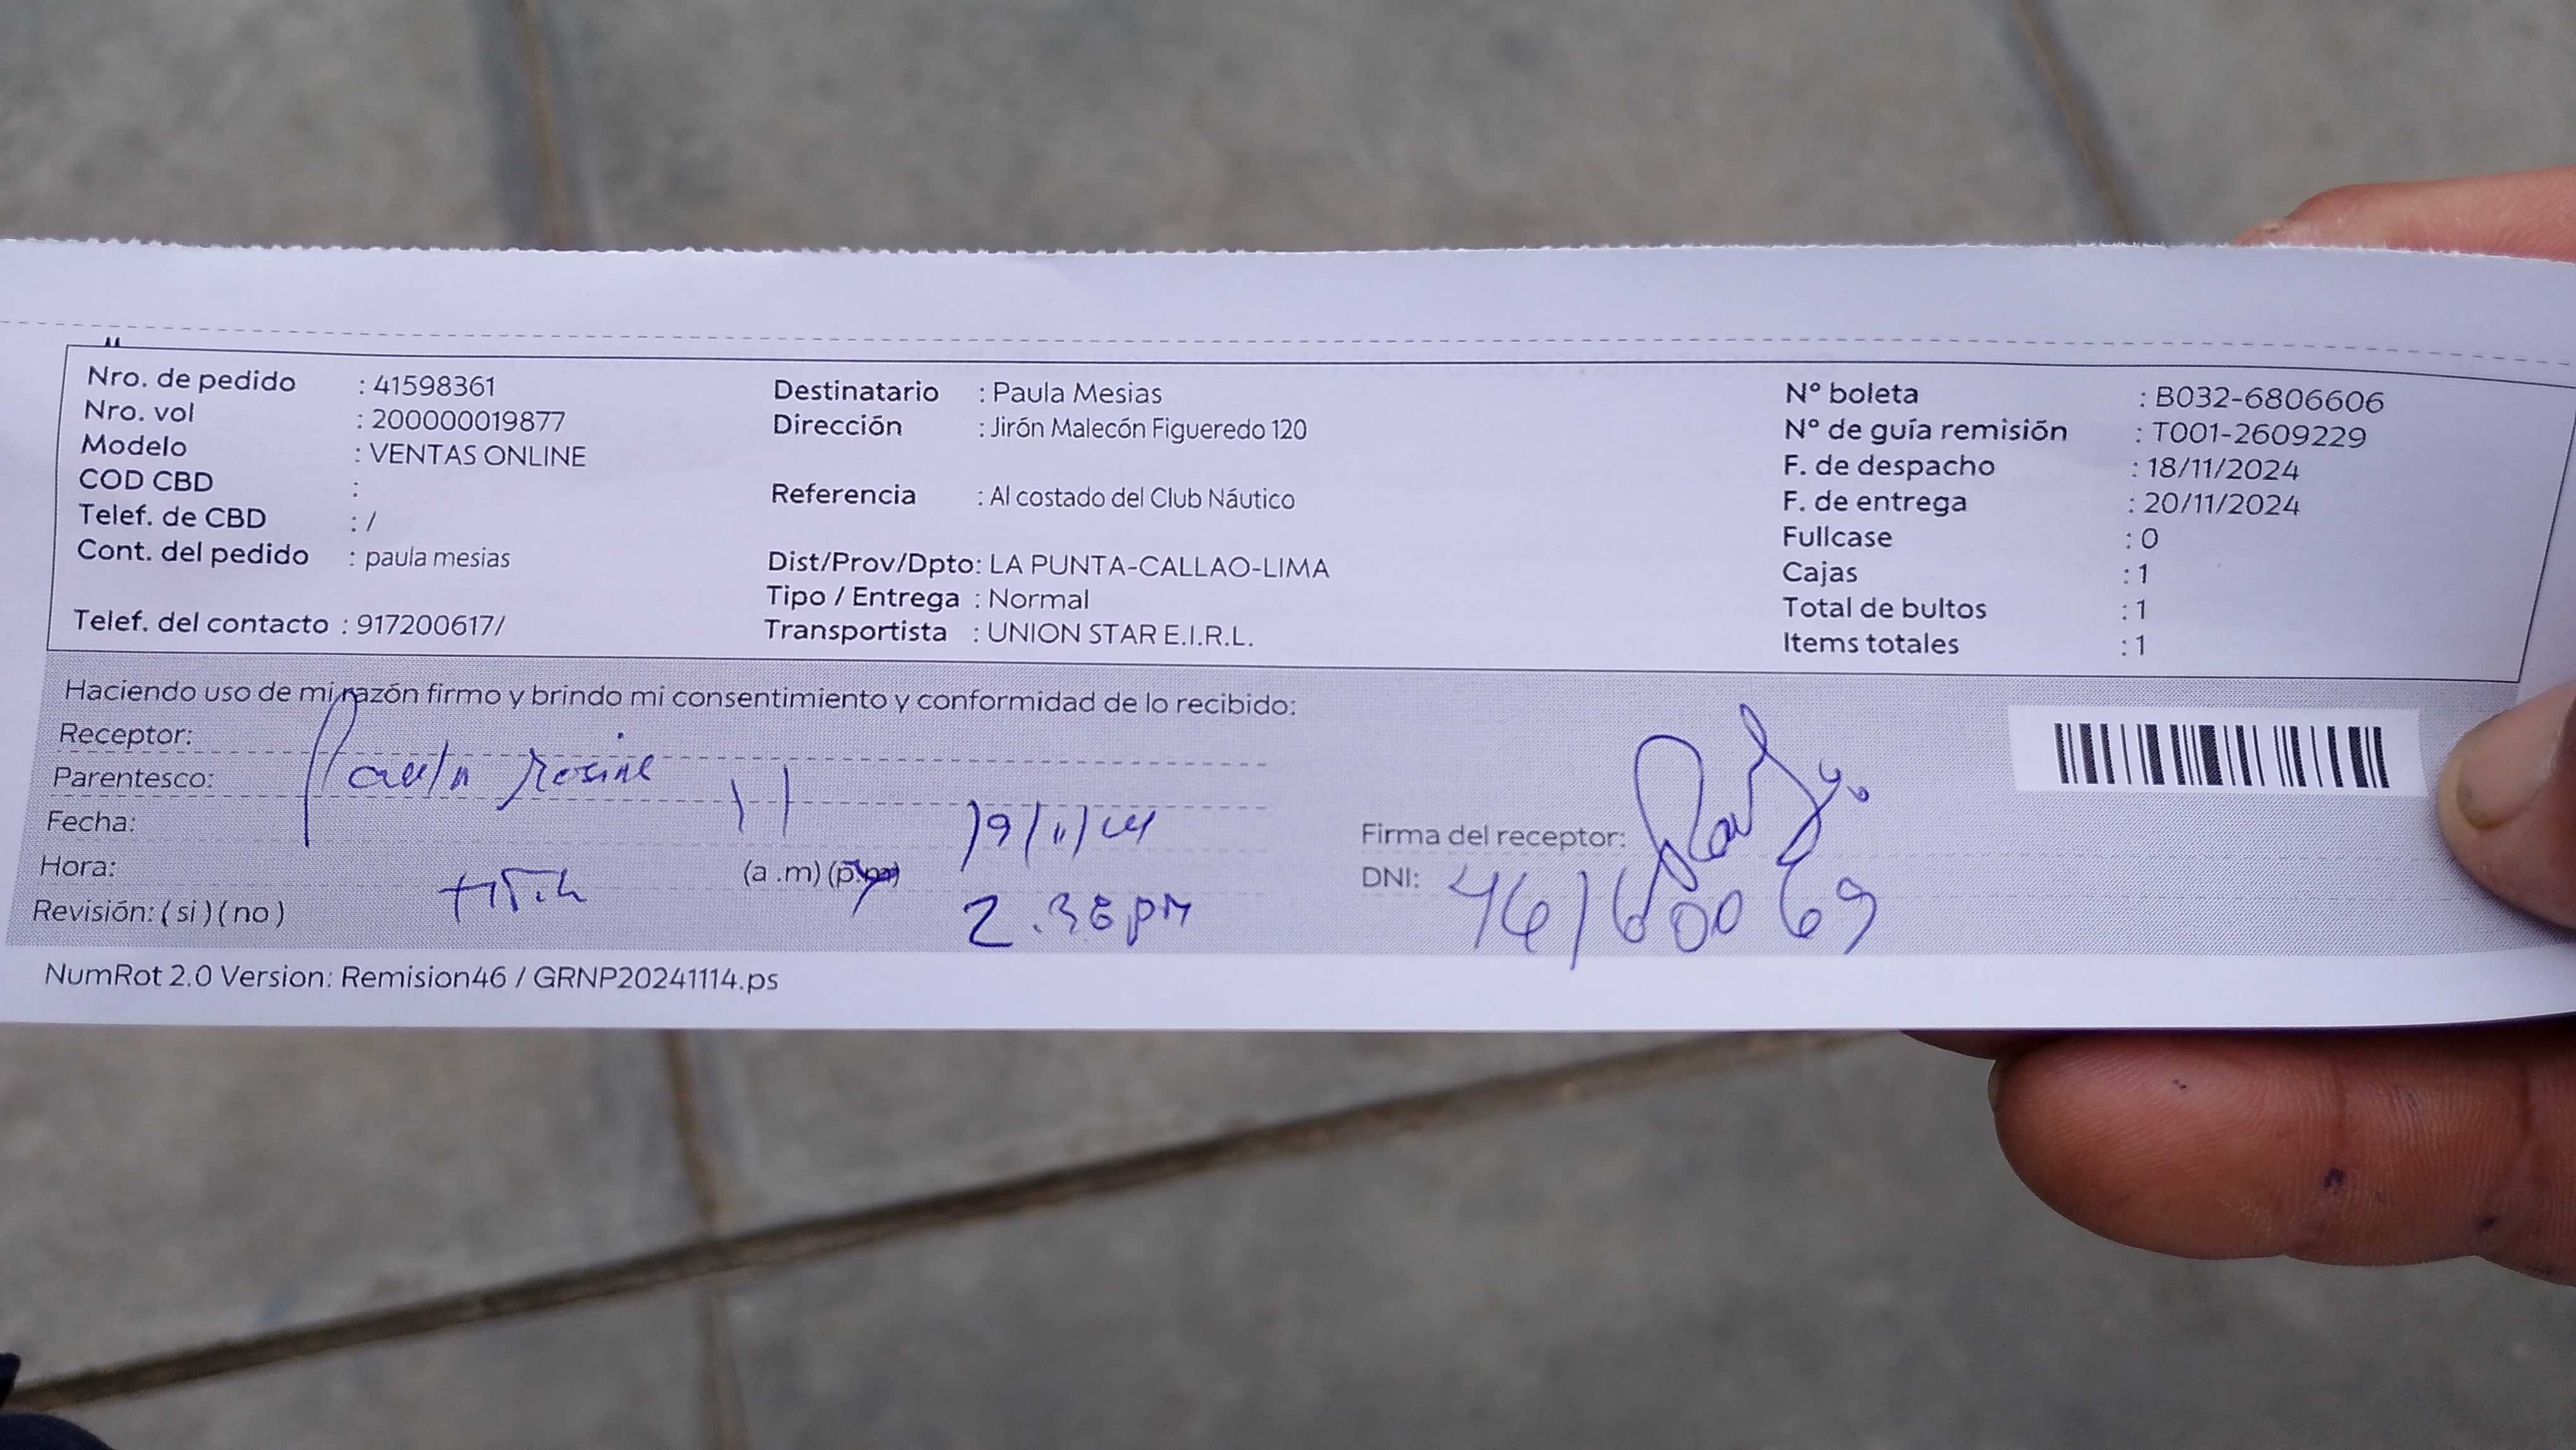 Nro. de pedido : 41598361
Nro. vol : 200000019877
Modelo : VENTAS ONLINE
COD CBD :
Telef. de CBD : /
Cont. del pedido : paula mesias
Telef. del contacto : 917200617/
Destinatario : Paula Mesias
Dirección : Jirón Malecón Figueredo 120
Referencia : Al costado del Club Náutico
Dist/Prov/Dpto: LA PUNTA-CALLAO-LIMA
Tipo / Entrega : Normal
Transportista : UNION STAR E.I.R.L.
Nº boleta : B032-6806606
Nº de guía remisión : T001-2609229
F. de despacho : 18/11/2024
F. de entrega : 20/11/2024
Fullcase : 0
Cajas : 1
Total de bultos : 1
Items totales : 1
Haciendo uso de mi razón firmo y brindo mi consentimiento y conformidad de lo recibido:
Receptor:
Parentesco: Paula
Fecha: 19/11/24
Hora: (a .m) (p.m) 2.38 pm
Revisión: ( si ) ( no )
Firma del receptor:
DNI: 46160069
NumRot 2.0 Version: Remision46 / GRNP20241114.ps